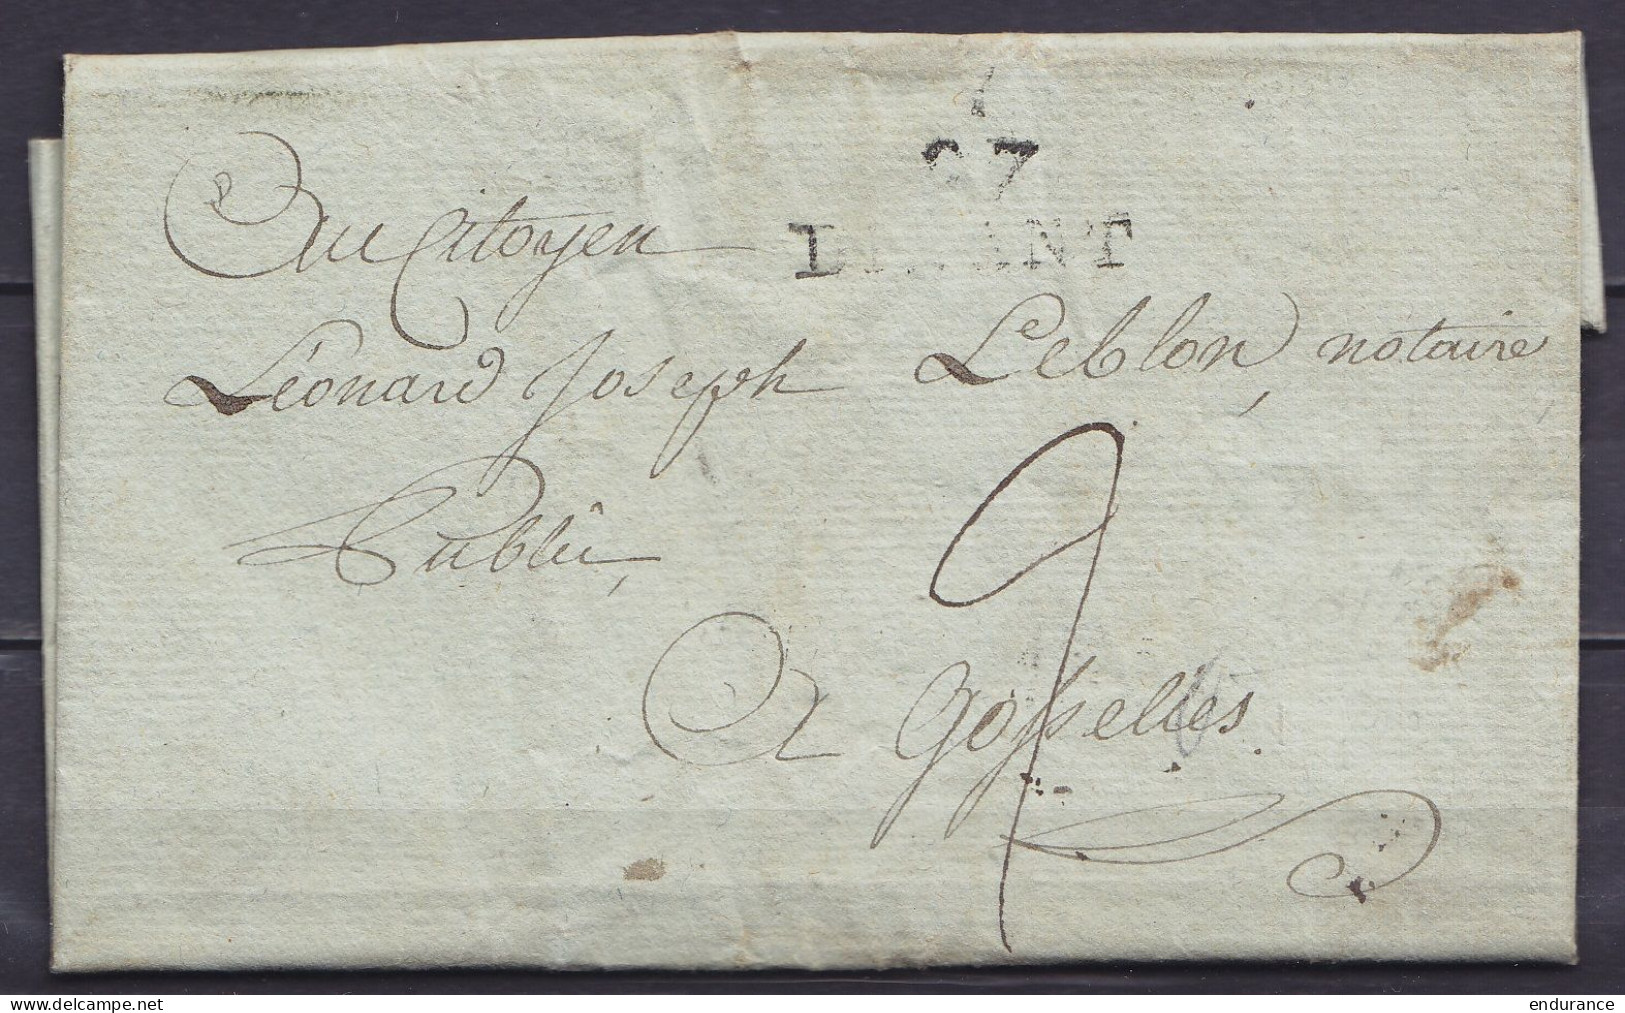 97
DINANT
Au Citoyen
Léonard Joseph Leblon, notaire
Publîc,
à Gosselies.
9
www.delcampe.net
endurance